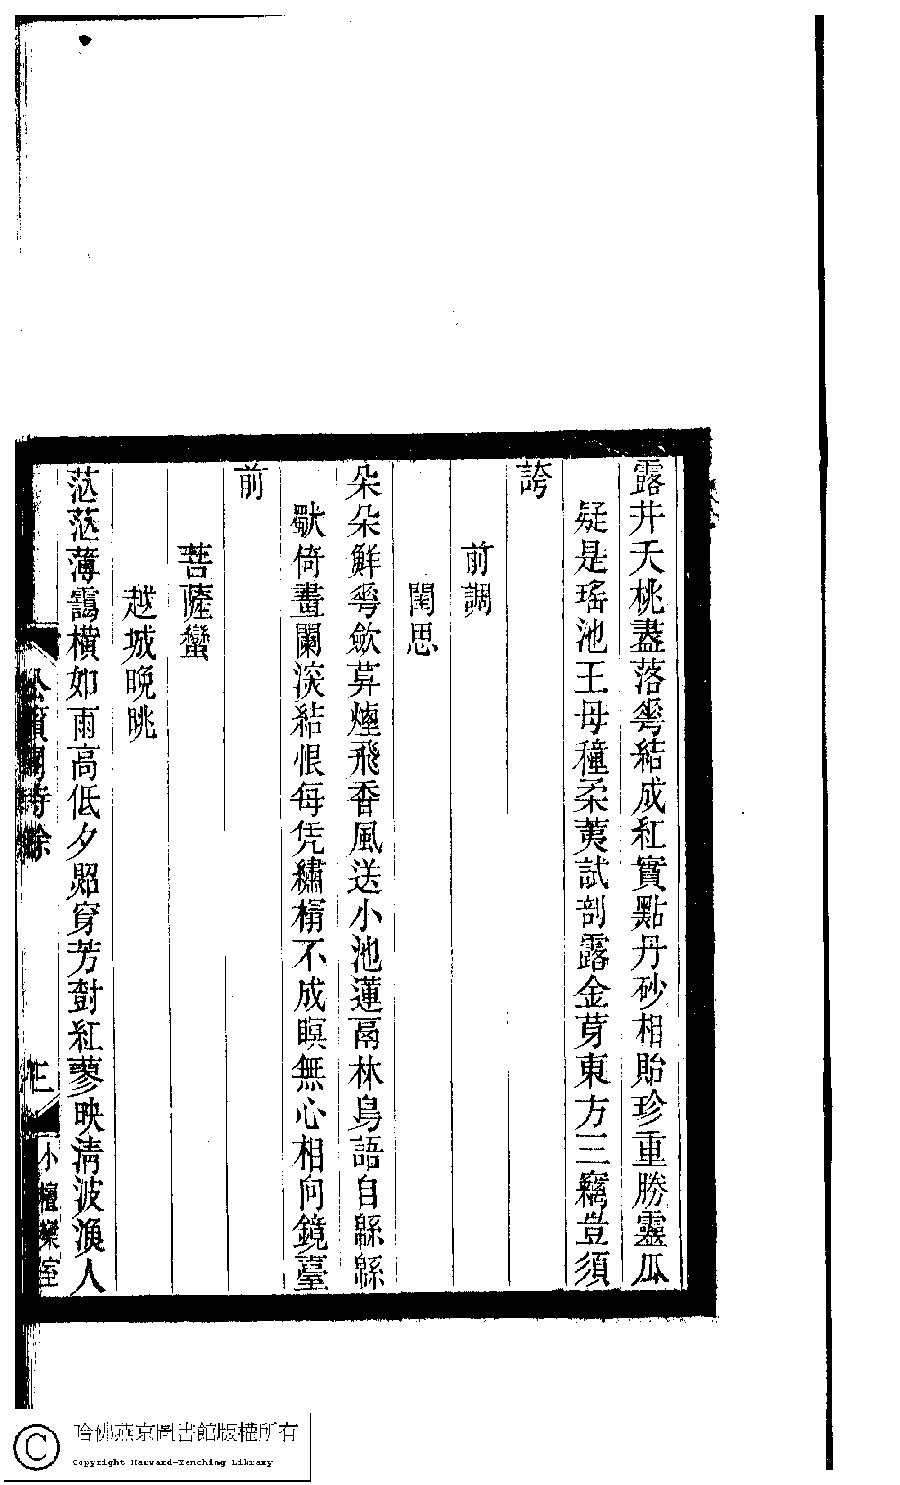 露井夭桃盡落蕚結成紅實點丹砂相貽珍重勝靈瓜
疑是瑤池王母穜柔荑試剖露金芽東方三竊豈須
誇
前調
閨思
朵朵鮮蕚斂萛爐飛香風送小池蓮鬲林鳥語自緜緜
獃倚畫闌深結恨每凭繡槢不成瞑無心相向鏡臺
前
菩薩蠻
越城晚眺
茫茫薄靄橫如雨高低夕照穿芳對紅蓼映清波漁人
小檀欒室
哈佛燕京圖書館版權所有
Copyright Harvard-Yenching Library